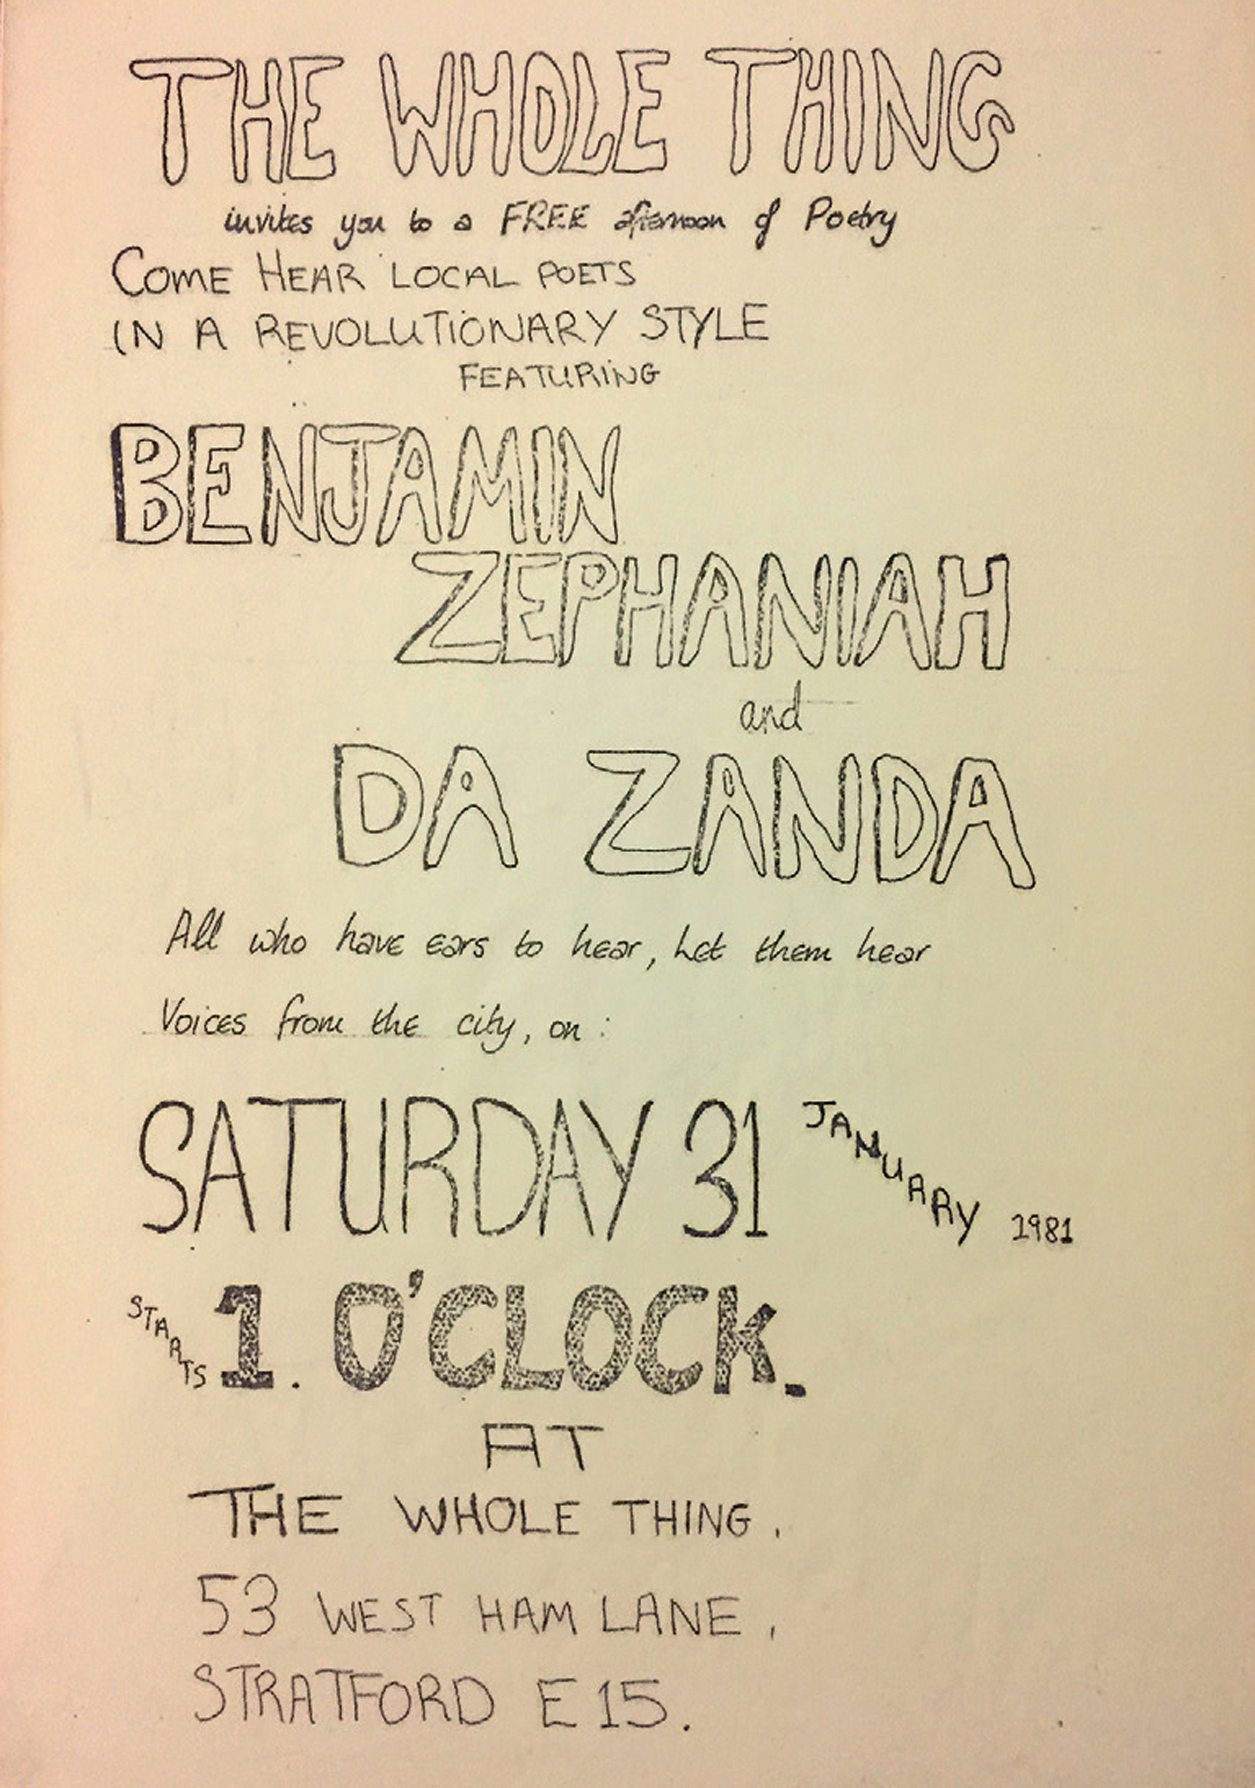 THE WHOLE THING
invites you to a FREE afternoon of Poetry
COME HEAR LOCAL POETS
IN A REVOLUTIONARY STYLE
FEATURING
BENJAMIN
ZEPHANIAH
and
DA ZANDA
All who have ears to hear, Let them hear
Voices from the city, on :
SATURDAY 31 JANUARY 1981
STARTS 1. O'CLOCK.
AT
THE WHOLE THING.
53 WEST HAM LANE,
STRATFORD E15.